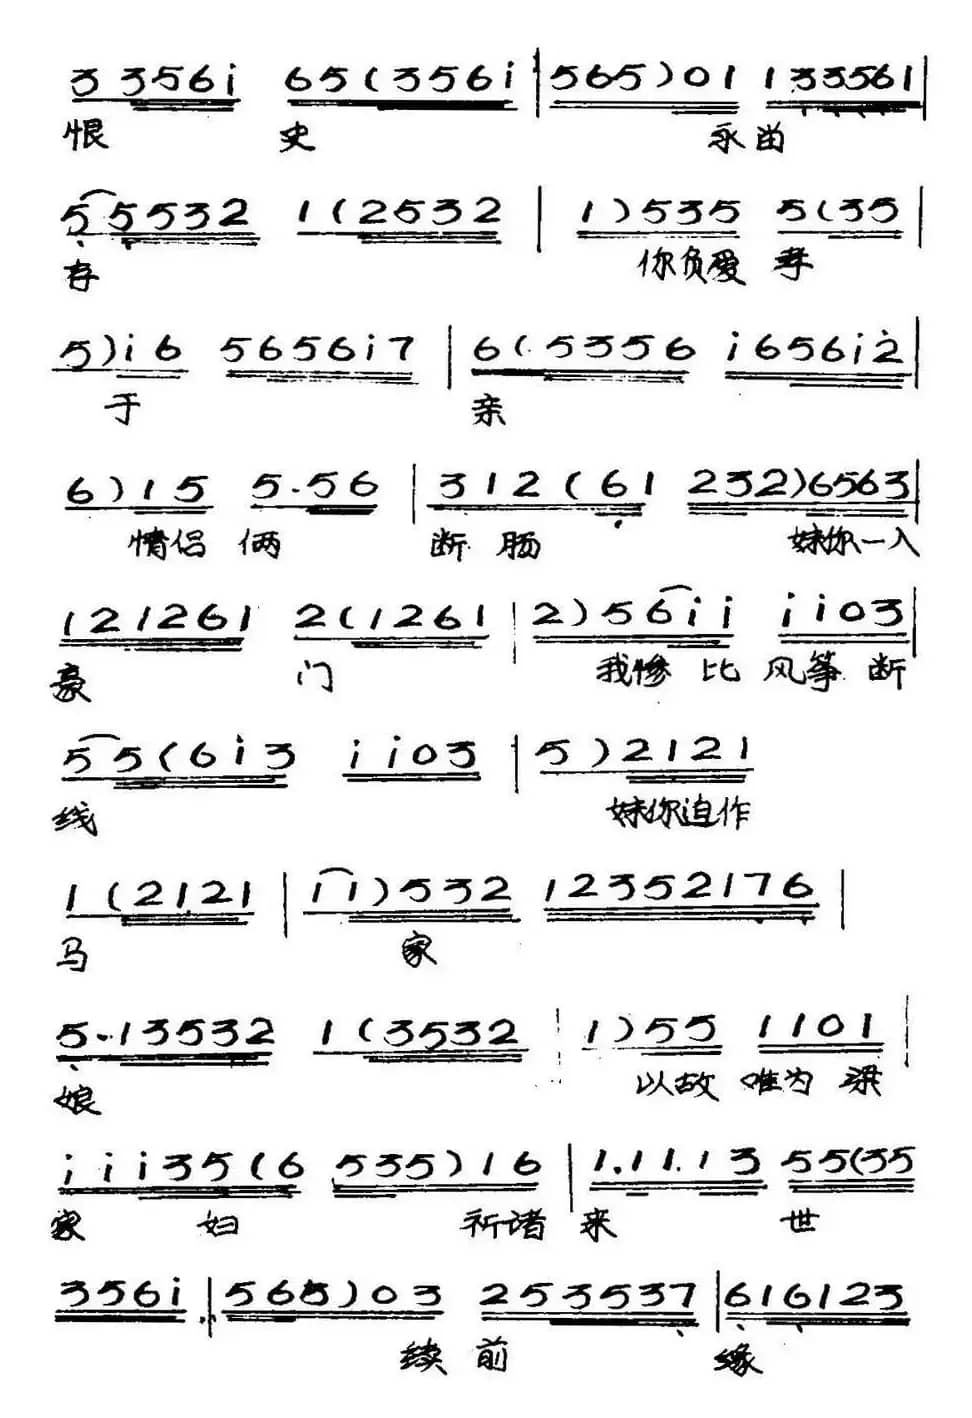 3 3561̇ 65(3561̇ | 565)01 133561 |
恨 史 永留
5 5532 1(2532 | 1)535 5(35 |
存 你负爱 孝
5)1̇6 56561̇7 | 6(5356 1̇6561̇2̇ |
于 亲
6)15 5.56 | 312(61 232)6563 |
情侣俩 断肠 妹你一入
121261 2(1261 | 2)561̇1̇ 1̇1̇03 |
豪 门 我惨比风筝断
5 5(61̇3 1̇1̇03 | 5)2121
线 妹你迫作
1(2121 | 11)532 12352176 |
马 家
5.13532 1(3532 | 1)55 1101 |
娘 以故 唯为梁
1̇1̇1̇35(6 535)16 | 1.11.13 55(35
家 妇 祈诸来 世
3561̇ | 565)03 253537 | 616123
续前 缘